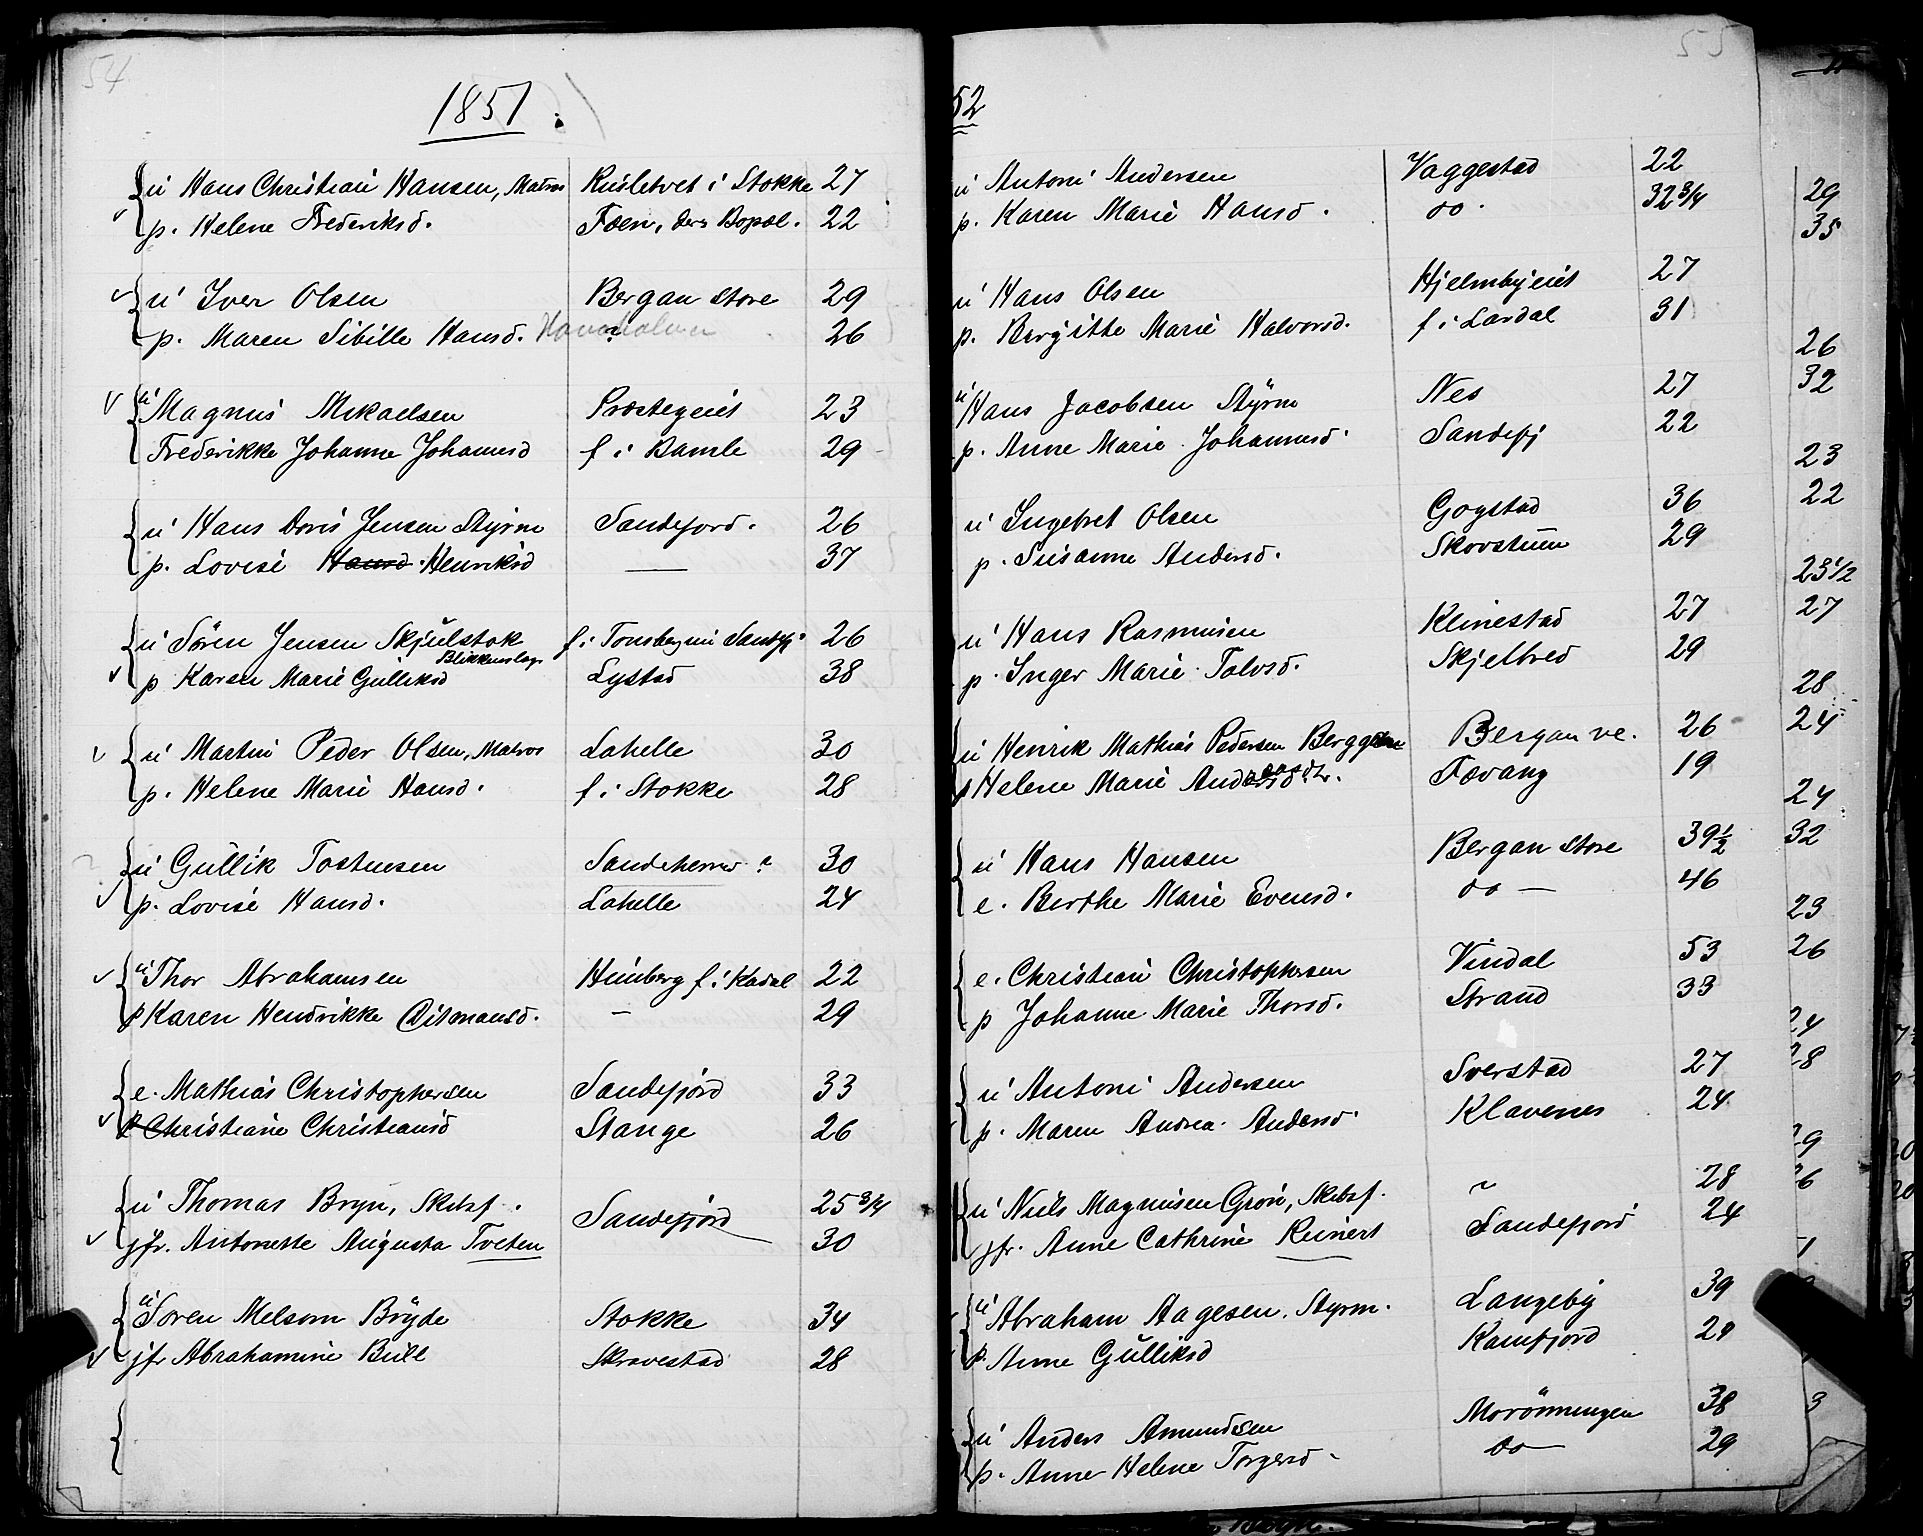 54
1851.
u Hans Christian Hansen, Matros Rusletvet i Stokke 27
p. Helene Frederiksd. Foen, ders Bopæl. 22
u Iver Olsen Bergan store 29
p. Maren Sibille Hansd. 26
u Magnus Mikaelsen Prestegeiet 23
Frederikke Johanne Johannesd f i Bamle 29
u Hans Doris Jensen Styrm Sandefjord. 26
p. Lovise Hansd. Henriksd — 37
u Sören Jensen Skjulstok f i Tonsberg Sandefj 26
Blikkenslag.
p Karen Marie Gulliksd Lystad 38
u Martin Peder Olsen, Matros Lahelle 30
p. Helene Marie Hansd. f i Stokke 28
u Gullik Tostensen Sandeherred ? 30
p. Lovise Hansd. Lahelle 24
u Thor Abrahamsen Himberg f i Kodal 22
p Karen Hendrikke Ditmansd. — 29
e. Mathias Christophersen Sandefjord 33
p Christiane Christiansd Stange 26
u Thomas Bryn, Skibsf. Sandefjord 25 3/4
jfr. Antonette Augusta Tveten 30
u Soren Melsom Bryde Stokke 34
jfr Abrahamine Bull Skravestad 28
55
52
u Anton Andersen Vaggestad 22
p. Karen Marie Hansd. do. 32 3/4
u Hans Olsen Hjelmbyeiet 27
p. Bergitte Marie Halvorsd. f i Lardal 31
u Hans Jacobsen Styrm Nes 27
p. Anne Marie Johannesd. Sandefj 22
u Ingebret Olsen Gogstad 36
p. Susanne Andersd. Skovstuen 29
u Hans Rasmusen Klinestad 27
p. Inger Marie Tolvsd. Skjelbred 29
u Henrik Mathias Pedersen Berggren Bergan ve. 26
p Helene Marie Andersdtr. Fævang 19
u Hans Hansen Bergan store 39 1/2
e. Berthe Marie Evensd. do — 46
e. Christian Christophersen Vindal 53
p Johanne Marie Thorsd. Strand 33
u Anton Andersen Sverstad 27
p. Maren Andrea Andersd. Klavenes 24
u Niels Magnusen Gron, Skibsf. 28
jfr. Anne Cathrine Reinert Sandefjord 24
u Abraham Aagesen. Styrm. Langeby 39
p. Anne Gulliksd Kamfjord 29
u Anders Amundsen Morönningen 38
p. Anne Helene Torgersd. do — 29
29
35
26
32
23
22
23 1/2
27
28
24
24
32
23
26
24
28
29